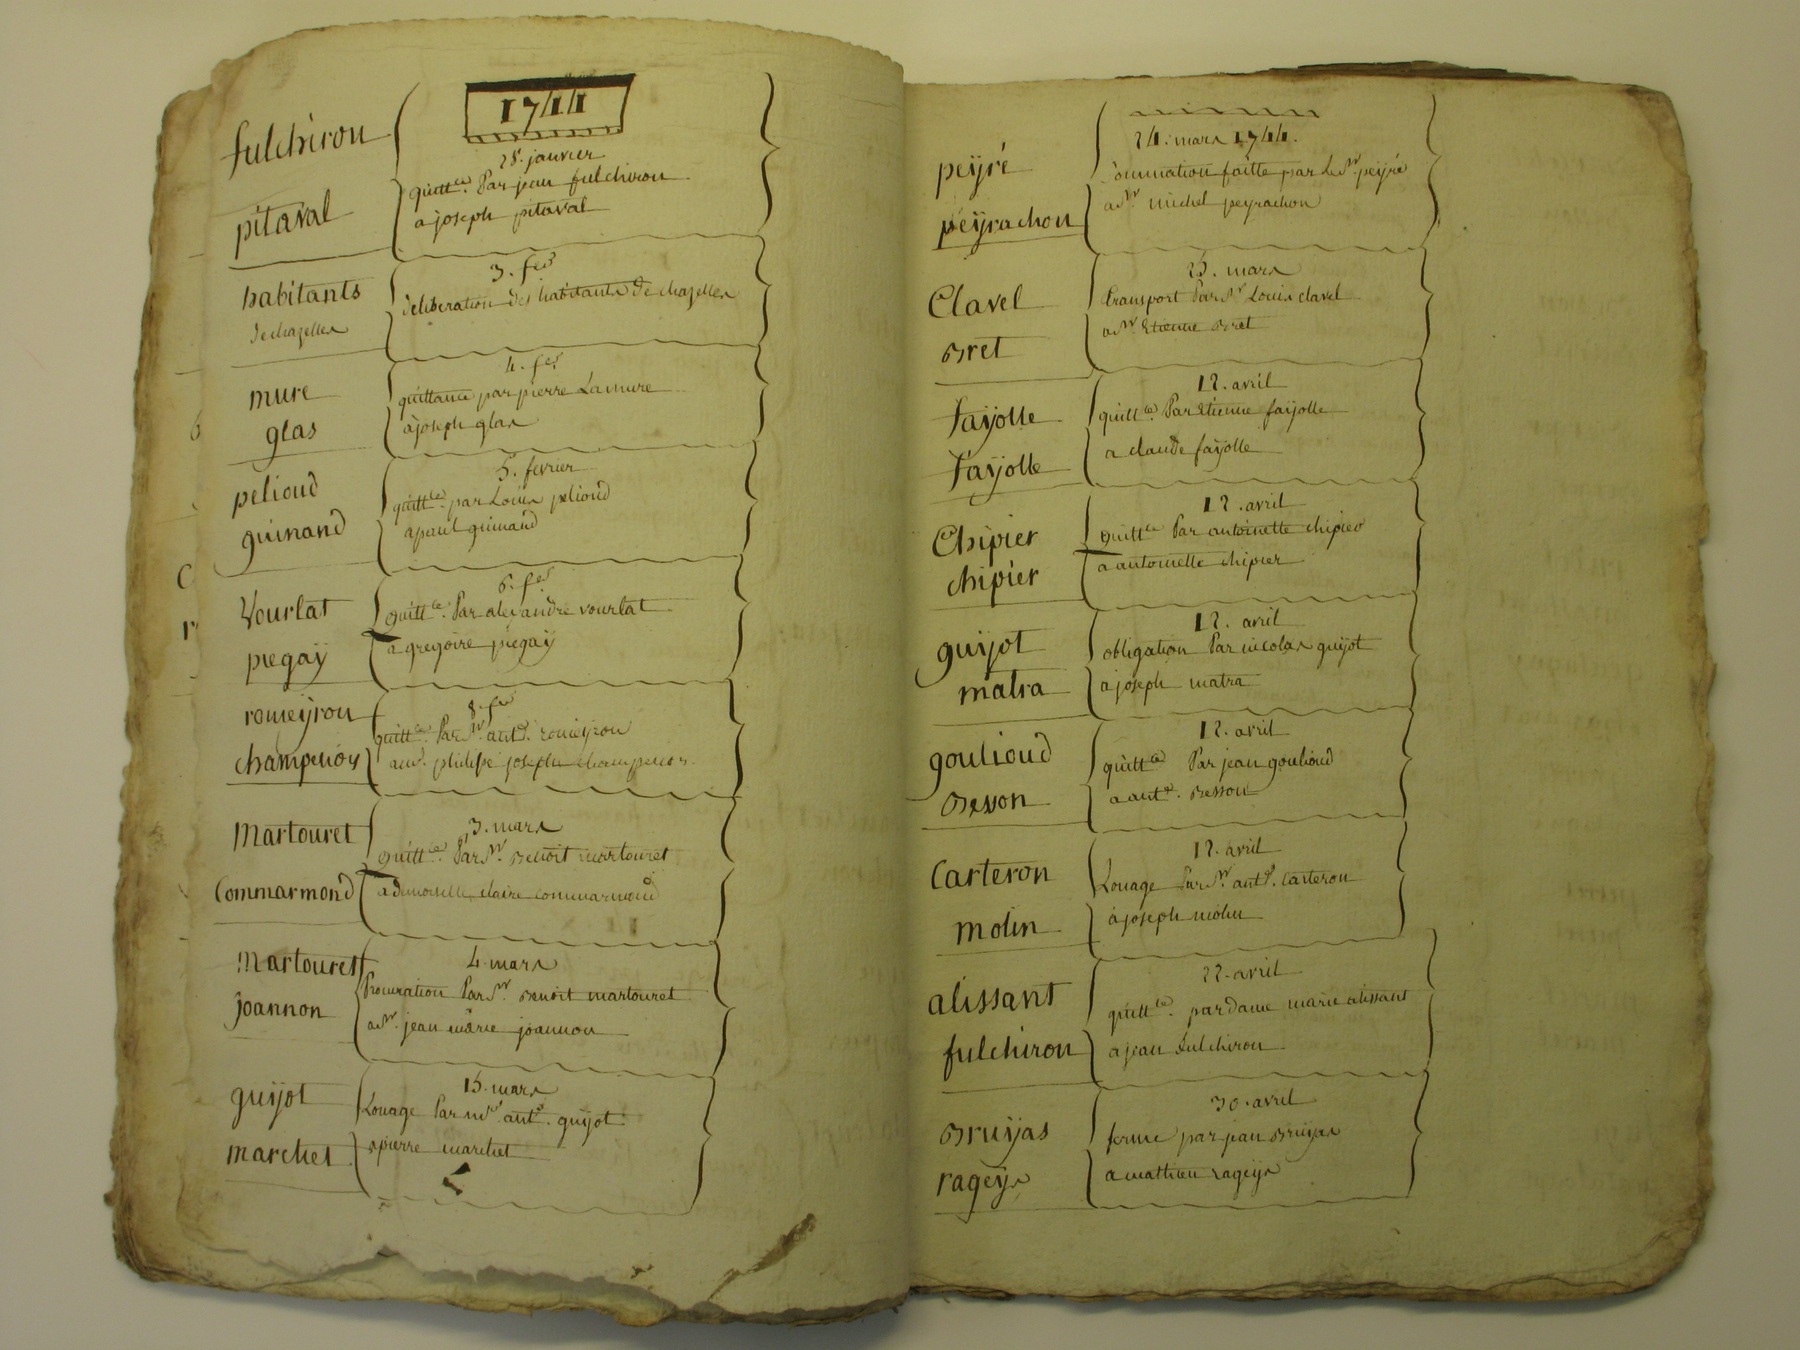 1744
fulchiron
pitaval
28. janvier
quitt.ce Par jean fulchiron
a joseph pitaval
habitants
de chazelles
3. fer
deliberation des habitants de chazelles
mure
glas
4. fer
quittance par pierre Lamure
à joseph glas
pelioud
guinand
5. fevrier
quitt.ce par Louis pelioud
a paul guinand
Vourlat
piegaÿ
6. fer
quitt.ce Par alexandre vourlat
a gregoire piegaÿ
romeÿron
champenois
8. fer
quitt.ce Par Sr. ant.e romeÿron
a philipe joseph champenois
Martouret
Commarmond
3. mars
quitt.ce Par Sr. Benoit martouret
a demoiselle claire commarmond
Martouret
joannon
4. mars
Procuration Par Sr. Benoit martouret
a Sr. jean marie joannon
guÿot
marchet
15. mars
Louage Par ant.e guÿot
a pierre marchet
peÿré
peÿrachon
24. mars 1744.
sommation faitte par Le Sr. peÿré
a Sr. michel peyrachon
Clavel
Bret
25. mars
transport Par Sr Louis clavel
a Sr. Etienne Bret
faÿolle
faÿolle
12. avril
quitt.ce Par Etienne faÿolle
a claude faÿolle
Chipier
chipier
12. avril
quitt.ce Par antoinette chipier
a antoinette chipier
guÿot
matra
12. avril
obligation Par nicolas guÿot
a joseph matra
goulioud
Besson
12. avril
quitt.ce Par jean goulioud
a ant.e. Besson
Carteron
molin
12. avril
Louage Par Sr. ant.e. Carteron
à joseph molin
alissant
fulchiron
22. avril
quitt.ce. par dame marie alissant
a jean fulchiron
Bruÿas
rageÿs
30. avril
ferme par jean Bruÿas
a mathieu rageÿs